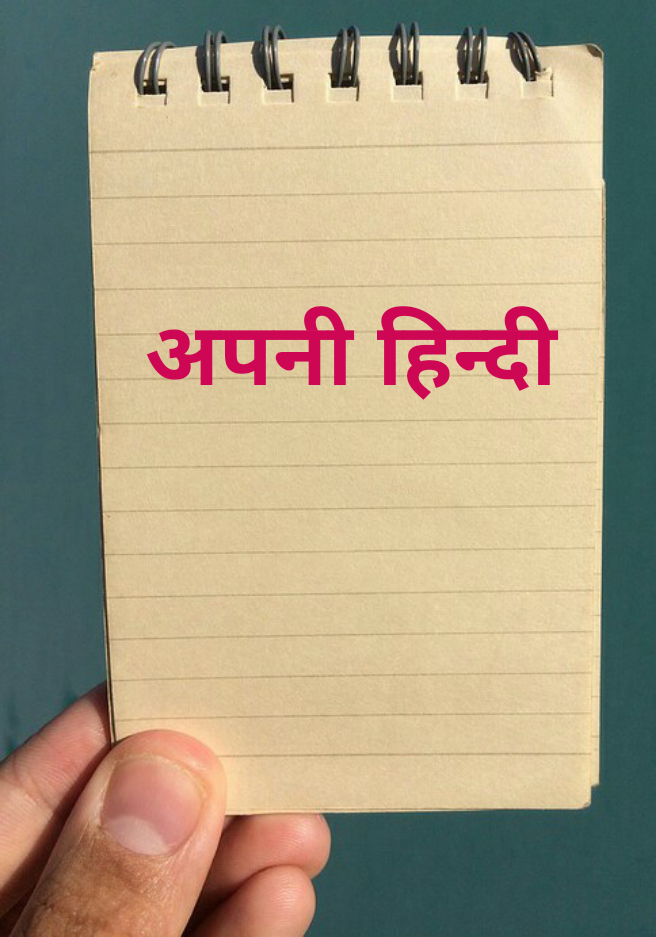 अपनी हिन्दी